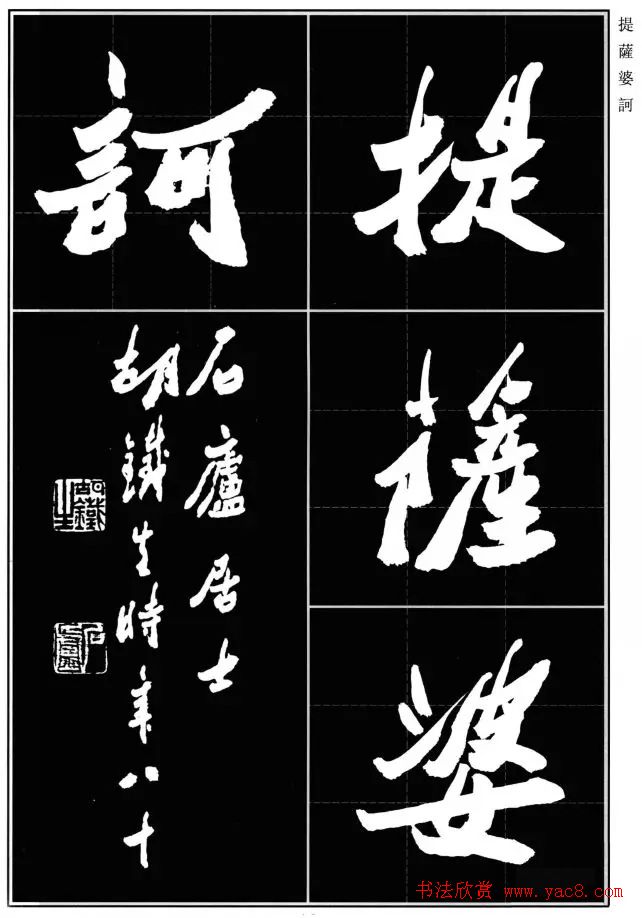 提薩婆訶
提
薩
婆
訶
石廬居士
胡鐵生時年八十
胡鐵生
石廬
书法欣赏 www.yac8.com